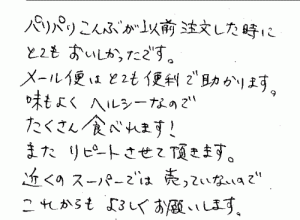 パリパリこんぶが以前注文した時に
とても おいしかったです。
メール便はとても便利で助かります。
味もよく ヘルシーなので
たくさん食べれます!
また リピートさせて頂きます。
近くのスーパーでは 売っていないので
これからも よろしくお願いします。